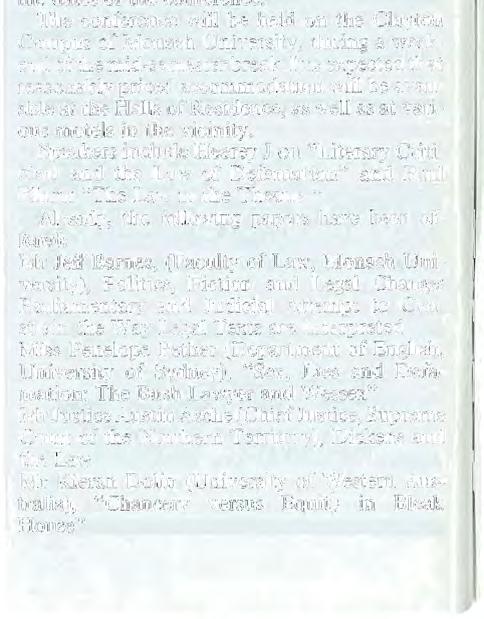 the dates of the conference.
The conference will be held on the Clayton
Campus of Monash University, during a week-
end of the mid-semester break. It is expected that
reasonably priced accommodation will be avail-
able at the Halls of Residence, as well as at vari-
ous motels in the vicinity.
Speakers include Hearsey J on "Literary Criti-
cism and the Law of Defamation" and Paul
"The Law in the Theatre."
Already, the following papers have been of-
fered:
Mr Jeff Barnes, (Faculty of Law, Monash Uni-
versity), Politics, Fiction and Legal Change:
Parliamentary and Judicial Attempt to
in the Way Legal Texts are Interpreted
Miss Penelope Pether (Department of English,
University of Sydney), "Sex, Lies and Defa-
mation: The Bush Lawyer and Wessex"
Mr Justice Austin Asche (Chief Justice, Supreme
Court of the Northern Territory), Dickens and
the Law
Mr Kieran Dolin (University of Western Aus-
tralia), "Chancery versus Equity in Bleak
House"